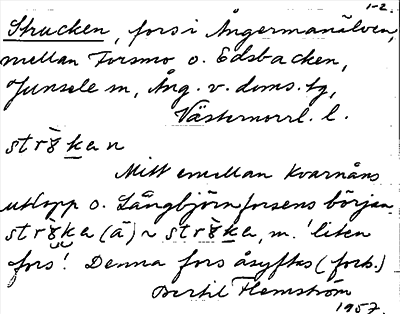 1-2.
Strucken, fors i Ångermanälven,
mellan Forsmo o. Edsbacken,
Junsele sn, Ång. v. doms. tg,
Västernorrl. l.
strɤ̀kan
Mitt emellan Kvarnåns
utlopp o. Långbjörnforsens början.
strɤ̀ka (ā) ~ strɤ̀ka, m. 'liten
fors'. Denna fors åsyftas (forts.)
Bertil Flemström
1957.